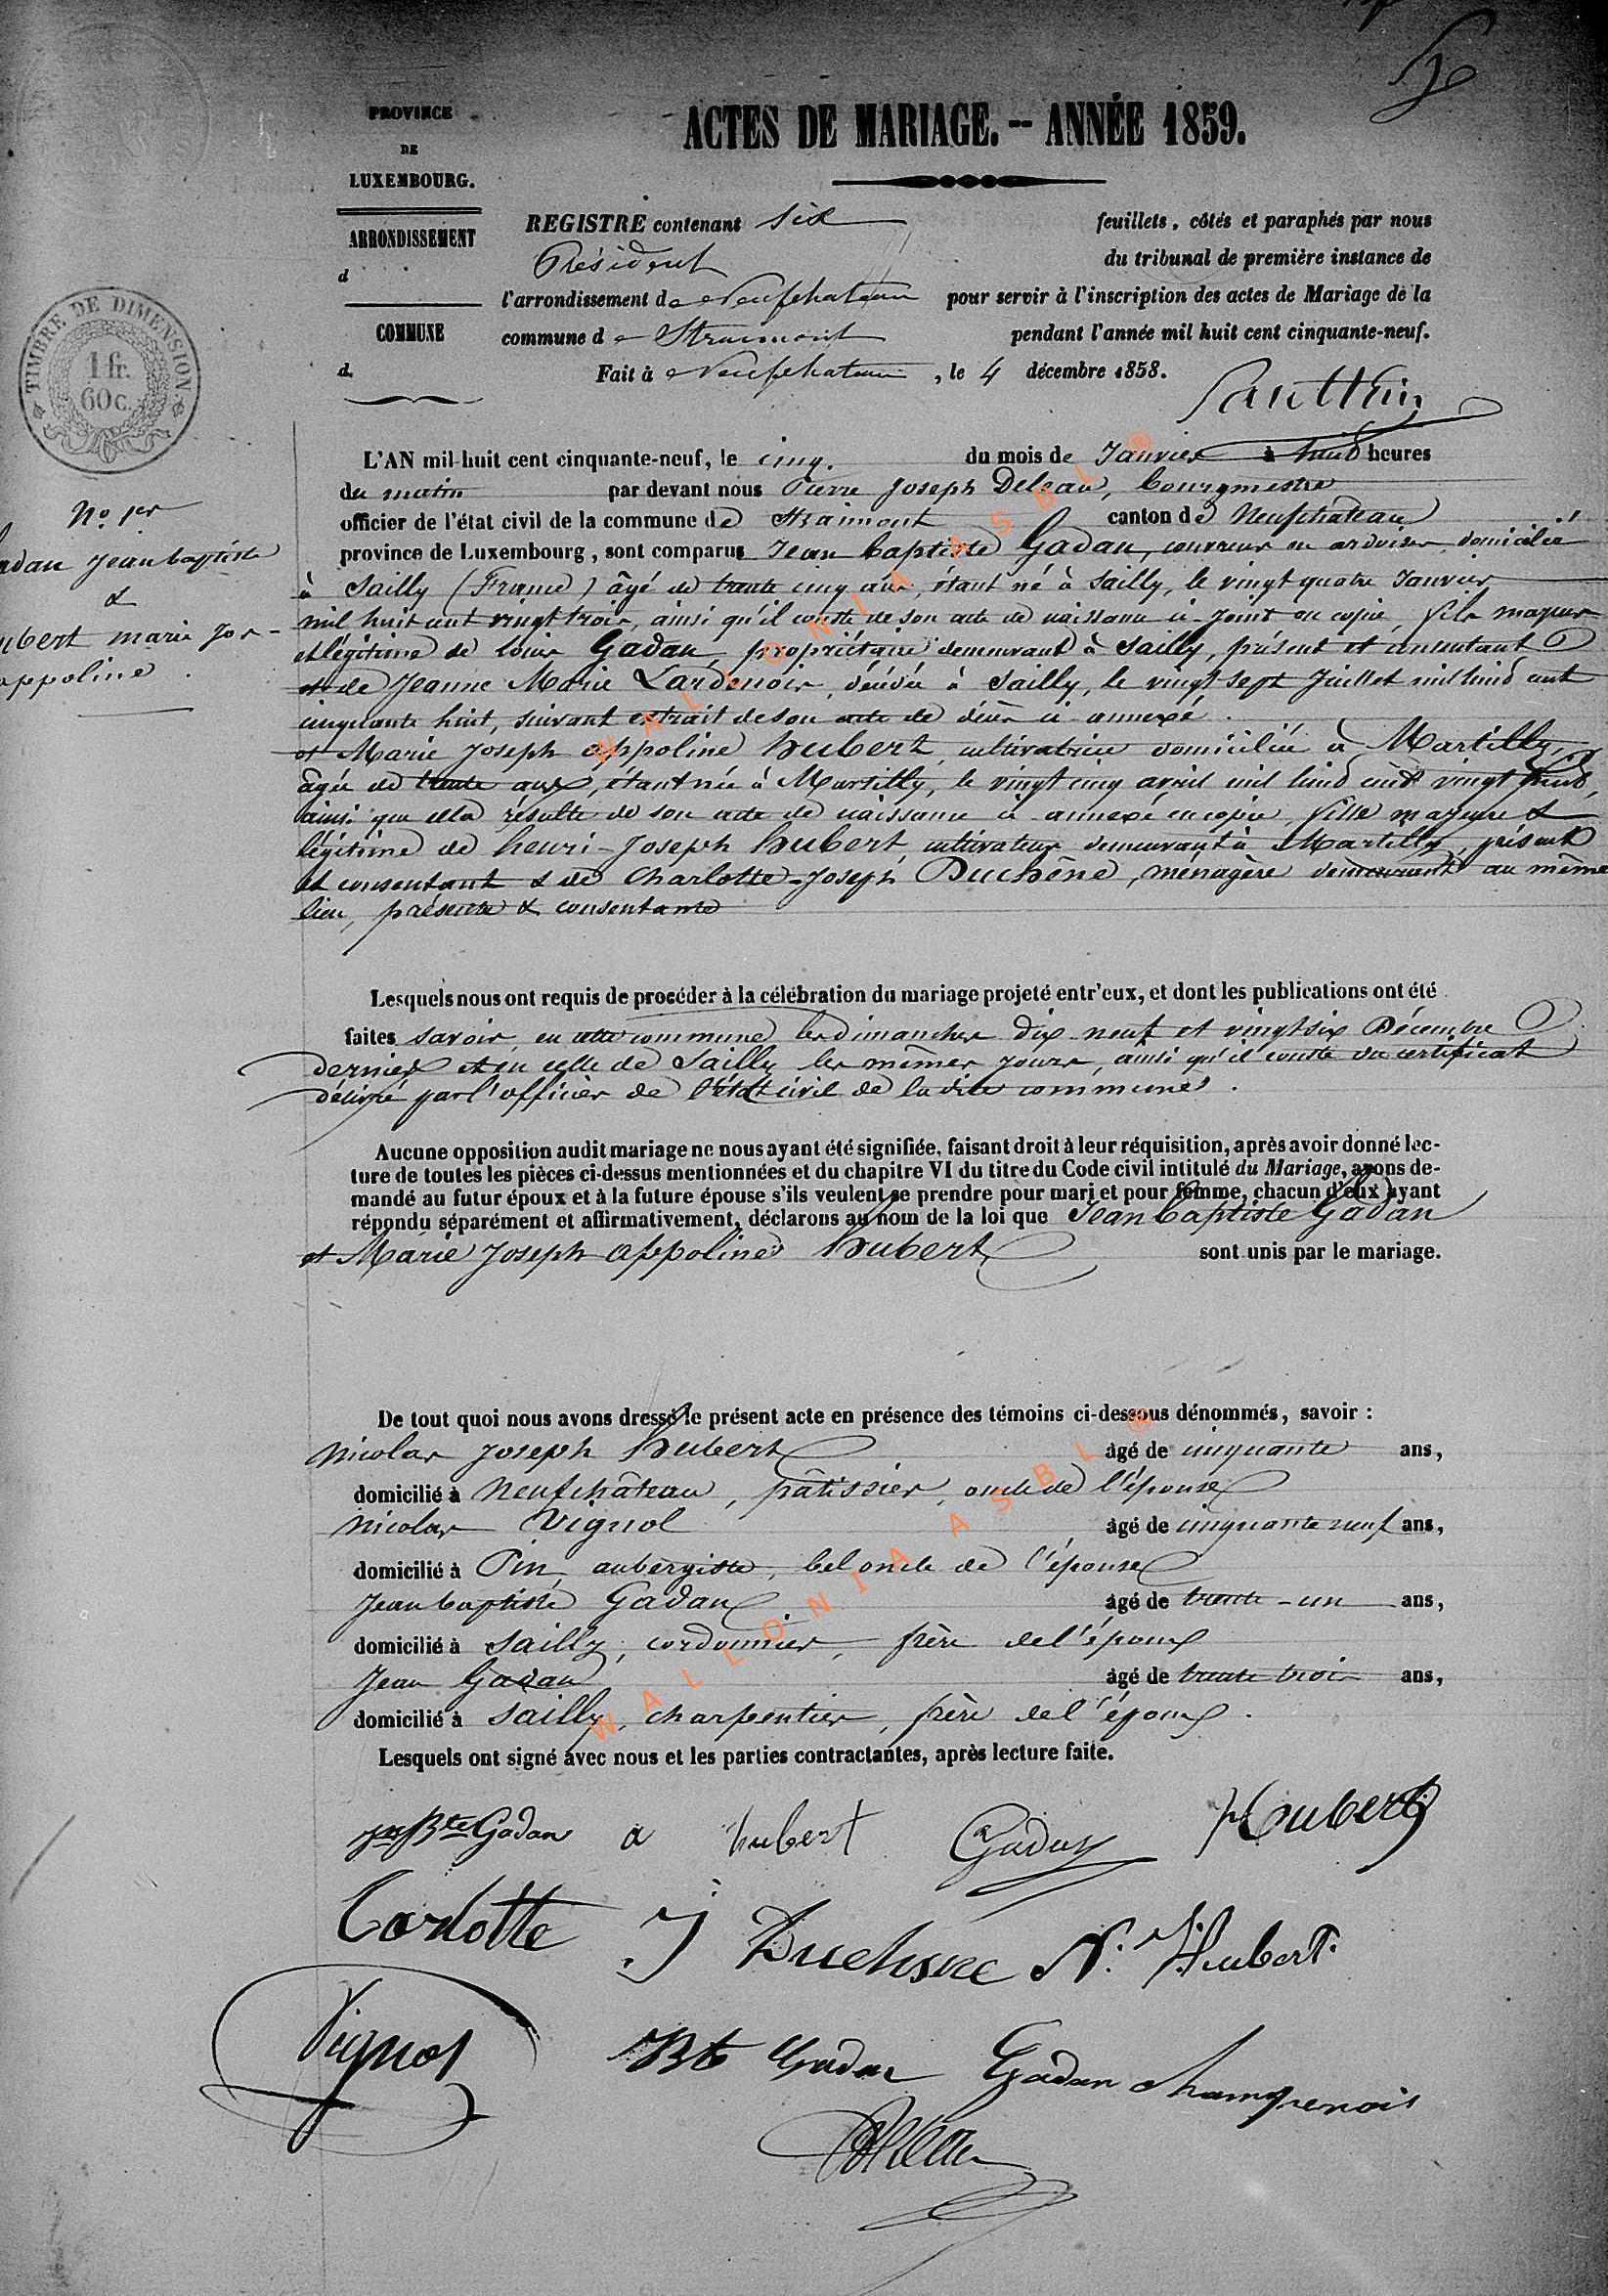 PROVINCE
DE
LUXEMBOURG.
ARRONDISSEMENT
d
COMMUNE
d.
ACTES DE MARIAGE. -- ANNÉE 1859.
REGISTRE contenant six feuillets, côtés et paraphés par nous
Président du tribunal de première instance de
l'arrondissement de Neufchateau pour servir à l'inscription des actes de Mariage de la
commune de Straimont pendant l'année mil huit cent cinquante-neuf.
Fait à Neufchateau, le 4 décembre 1858.
TIMBRE DE DIMENSION
1 fr.
60 c.
No 1er
adan Jean baptiste
&
ubert marie Jos-
appoline.
L'AN mil-huit cent cinquante-neuf, le cinq. du mois de Janvier à huit heures
du matin par devant nous Pierre Joseph Deleau, bourgmestre
officier de l'état civil de la commune de Straimont canton de Neufchâteau
province de Luxembourg, sont comparus Jean baptiste Gadan, couvreur en ardoises, domicilié
à Sailly (France) âgé de trente cinq ans, étant né à Sailly, le vingt quatre Janvier
mil huit cent vingt trois, ainsi qu'il conste de son acte de naissance ci-joint en copie, fils majeur
et légitime de louis Gadan, propriétaire demeurant à Sailly, présent et consentant
et de Jeanne Marie Lardenois, décédée à Sailly, le vingt sept Juillet mil huit cent
cinquante huit, suivant extrait de son acte de décès ci-annexé.
et Marie Joseph appoline hubert, cultivatrice domiciliée à Martilly,
âgée de trente ans, étant née à Martilly, le vingt cinq avril mil huit cent vingt huit,
ainsi que cela résulte de son acte de naissance ci-annexé en copie, fille majeure &
légitime de henri-Joseph hubert, cultivateur demeurant à Martilly, présent
et consentant & de Charlotte-Joseph Duchêne, ménagère demeurant au même
lieu, présente & consentante
Lesquels nous ont requis de procéder à la célébration du mariage projeté entr'eux, et dont les publications ont été
faites savoir, en cette commune les dimanches dix-neuf et vingt six Décembre
dernier et en celle de Sailly les mêmes jours, ainsi qu'il conste du certificat
délivré par l'officier de l'état civil de la dite commune.
Aucune opposition audit mariage ne nous ayant été signifiée, faisant droit à leur réquisition, après avoir donné lec-
ture de toutes les pièces ci-dessus mentionnées et du chapitre VI du titre du Code civil intitulé du Mariage, avons de-
mandé au futur époux et à la future épouse s'ils veulent se prendre pour mari et pour femme, chacun d'eux ayant
répondu séparément et affirmativement, déclarons au nom de la loi que Jean baptiste Gadan
et Marie Joseph appoline hubert sont unis par le mariage.
De tout quoi nous avons dressé le présent acte en présence des témoins ci-dessous dénommés, savoir :
Nicolas Joseph hubert âgé de cinquante ans,
domicilié à Neufchâteau, pâtissier, oncle de l'épouse
Nicolas Vignol âgé de cinquante neuf ans,
domicilié à Pin, aubergiste, bel oncle de l'épouse
Jean baptiste Gadan âgé de trente-un ans,
domicilié à Sailly, cordonnier, frère de l'époux
Jean Gadan âgé de trente trois ans,
domicilié à Sailly, charpentier, frère de l'époux.
Lesquels ont signé avec nous et les parties contractantes, après lecture faite.
Jn Bte Gadan a hubert Gadan Houbert
Carlotte J Duchene N. J. Hubert.
Vignol JBte Gadan Gadan champenois
Deleau
WALLONIA ASBL ®
WALLONIA ASBL ®